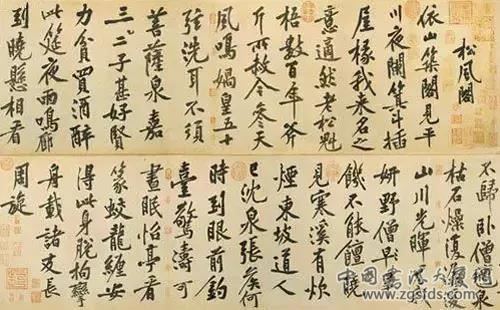 松風閣
依山築閣見平
川夜闌箕斗插
屋椽我來名之
意適然老松魁
梧數百年斧
斤所赦今參天
風鳴媧皇五十
弦洗耳不須
菩薩泉嘉
三二子甚好賢
力貧買酒醉
此筵夜雨鳴廊
到曉懸相看
不歸臥僧氈泉
枯石燥復潺湲
山川光暉為我
妍野僧旱
饑不能饘曉
見寒溪有炊
煙東坡道人
已沈泉張侯何
時到眼前釣
臺驚濤可
晝眠怡亭看
篆蛟龍纏安
得此身脫拘攣
舟載諸友長
周旋
www.zgsfds.com